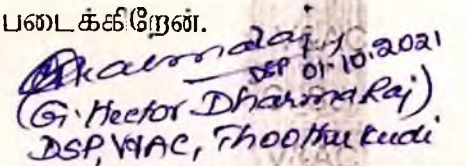 படைக்கிறேன்.
DSP 01.10.2021
(G. Hector Dharma Raj)
DSP, V&AC, Thoothukudi